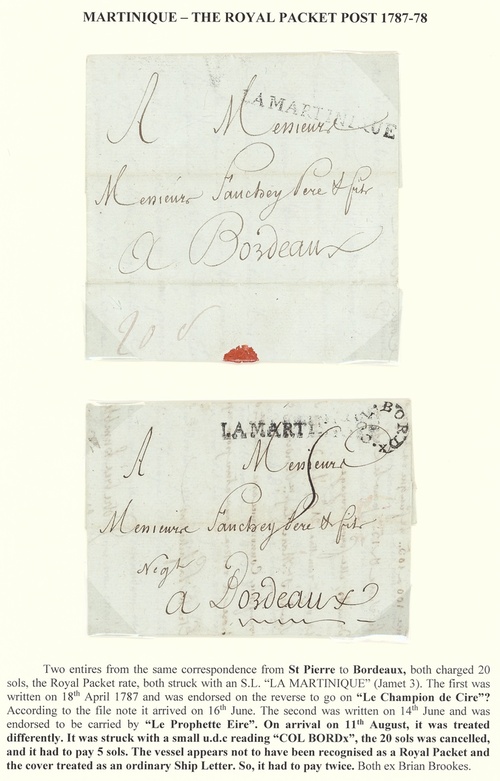 MARTINIQUE – THE ROYAL PACKET POST 1787-78
LA MARTINIQUE
A Messieurs
Messieurs Fauchey Pere & fils
a Bordeaux
20 s
LA MARTI
COL. BORDx
A Messieurs
5
Messieurs Fauchey Pere & fils
Negts
a Bordeaux
Two entires from the same correspondence from St Pierre to Bordeaux, both charged 20
sols, the Royal Packet rate, both struck with an S.L. “LA MARTINIQUE” (Jamet 3). The first was
written on 18th April 1787 and was endorsed on the reverse to go on “Le Champion de Cire”?
According to the file note it arrived on 16th June. The second was written on 14th June and was
endorsed to be carried by “Le Prophette Eire”. On arrival on 11th August, it was treated
differently. It was struck with a small u.d.c reading “COL BORDx”, the 20 sols was cancelled,
and it had to pay 5 sols. The vessel appears not to have been recognised as a Royal Packet and
the cover treated as an ordinary Ship Letter. So, it had to pay twice. Both ex Brian Brookes.